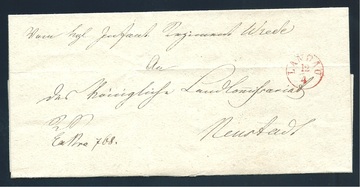 Vom kgl Infant Regiment Wrede
An
das Königliche Landcommissariat
Neustadt
Ex No 768.
LANDAU